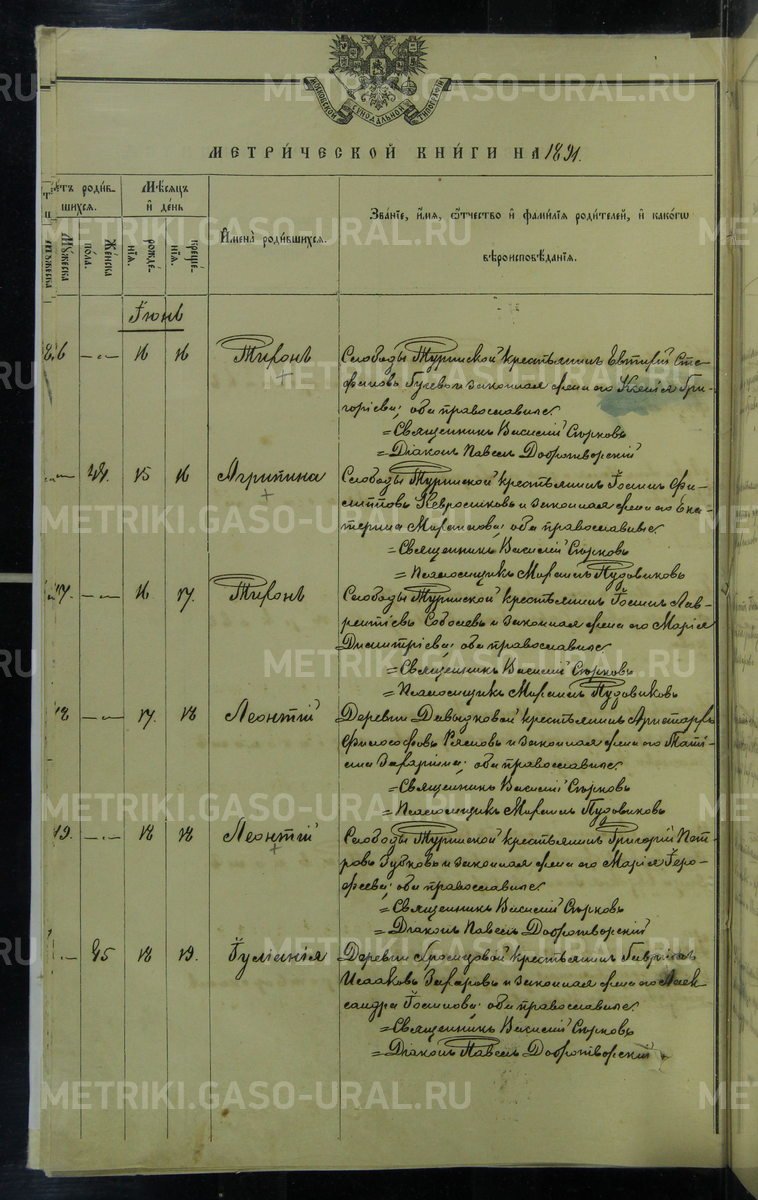 МОСКОВСКОЙ СѴНОДАЛЬНОЙ ТИПОГРАФІИ
МЕТРИ́ЧЕСКОЙ КНИ́ГИ НА 1891.
четъ роди́в-
шихся.
Му́жеска
Же́нска
по́ла.
Мѣ́сяцъ
и҆ де́нь
рожде́-
нїѧ.
креще́-
нїѧ.
И҆мена̀ роди́вшихсѧ.
Зва́нїе, и҆́мѧ, ѻ҆́тчество и҆ фами́лїѧ роди́телей, и҆ како́гѡ
вѣроисповѣ́данїѧ.
Іюнь
26 16 16 Тихонъ
Слободы Туринской крестьянинъ Евтихій Сте-
фановъ и законная жена его Ксенія Гри-
горіева; оба православные
= Священникъ Василій Сырковъ
= Діаконъ Павелъ Добротворскій
24. 15 16 Агрипина
Слободы Туринской крестьянинъ Іосифъ Фи-
липповъ и законная жена его Ека-
терина; оба православные.
= Священникъ Василій Сырковъ
= Псаломщикъ Михаилъ Пудовиковъ
27. 16 17. Тихонъ
Слободы Туринской крестьянинъ Іосифъ Лав-
рентіевъ Соболевъ и законная жена его Марія
Димитріева; оба православные
= Священникъ Василій Сырковъ
= Псаломщикъ Михаилъ Пудовиковъ
18 17. 18 Леонтій
Деревни Давыдковой крестьянинъ Аристархъ
Философовъ и законная жена его Тать-
яна Захаріина; оба православные
= Священникъ Василій Сырковъ
= Псаломщикъ Михаилъ Пудовиковъ
19. 18 18 Леонтій
Слободы Туринской крестьянинъ Григорій Пет-
ровъ Губковъ и законная жена его Марія Іеро-
феева; оба православные
= Священникъ Василій Сырковъ
= Діаконъ Павелъ Добротворскій
25 18 19. Іуліанія
Деревни крестьянинъ Гавріилъ
Исааковъ Захаровъ и законная жена его Алек-
сандра Іосифова; оба православные.
= Священникъ Василій Сырковъ
= Діаконъ Павелъ Добротворскій
METRIKI.GASO-URAL.RU